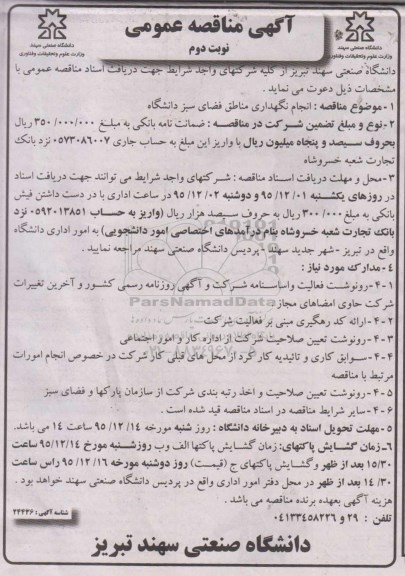 آگهی مناقصه عمومی
نوبت دوم
دانشگاه صنعتی سهند
وزارت علوم و تحقیقات و فناوری
دانشگاه صنعتی سهند
وزارت علوم و تحقیقات و فناوری
دانشگاه صنعتی سهند تبریز از کلیه شرکتهای واجد شرایط جهت دریافت اسناد مناقصه عمومی با
مشخصات ذیل دعوت می نماید .
۱-موضوع مناقصه : انجام نگهداری مناطق فضای سبز دانشگاه
۲-نوع و مبلغ تضمین شرکت در مناقصه : ضمانت نامه بانکی به مبلغ ۳۵۰/۰۰۰/۰۰۰ ریال
بحروف سیصد و پنجاه میلیون ریال با واریز این مبلغ به حساب جاری ۰۵۷۳۰۸۶۰۰۷ نزد بانک
تجارت شعبه خسروشاه
۳-محل و مهلت دریافت اسناد مناقصه : شرکتهای واجد شرایط می توانند جهت دریافت اسناد
در روزهای یکشنبه ۹۵/۱۲/۰۱ و دوشنبه ۹۵/۱۲/۰۲ در ساعت اداری با در دست داشتن فیش
بانکی به مبلغ ۳۰۰/۰۰۰ ریال به حروف سیصد هزار ریال (واریز به حساب ۰۵۹۲۰۱۳۸۵۱ نزد
بانک تجارت شعبه خسروشاه بنام درآمدهای اختصاصی امور دانشجویی) به امور اداری دانشگاه
واقع در تبریز - شهر جدید سهند - پردیس دانشگاه صنعتی سهند مراجعه نمایید .
۴-مدارک مورد نیاز :
۴-۱-رونوشت فعالیت واساسنامه شرکت و آگهی روزنامه رسمی کشور و آخرین تغییرات
شرکت حاوی امضاهای مجاز
۴-۲-ارائه کد رهگیری مبنی بر فعالیت شرکت
۴-۳-رونوشت تعیین صلاحیت شرکت از اداره کار و امور اجتماعی
۴-۴-سوابق کاری و تائیدیه کارکرد از محل های قبلی کار شرکت در خصوص انجام امورات
مرتبط با مناقصه
۴-۵-رونوشت تعیین صلاحیت و اخذ رتبه بندی شرکت از سازمان پارکها و فضای سبز
۴-۶-سایر شرایط مناقصه در اسناد مناقصه قید شده است .
۵-مهلت تحویل اسناد به دبیرخانه دانشگاه : روز شنبه مورخه ۹۵/۱۲/۱۴ ساعت ۱۴ می باشد.
۶-زمان گشایش پاکتهای: زمان گشایش پاکتها الف وب روزشنبه مورخ ۹۵/۱۲/۱۴ ساعت
۱۵/۳۰ بعد از ظهر وگشایش پاکتهای ج (قیمت) روز دوشنبه مورخه ۹۵/۱۲/۱۶ راس ساعت
۱۴/۳۰ بعد از ظهر در محل دفتر امور اداری واقع در پردیس دانشگاه صنعتی سهند خواهد بود .
هزینه آگهی بعهده برنده مناقصه می باشد .
تلفن : ۲۹ و ۰۴۱۳۳۴۵۸۲۲۶
شناسه آگهی : ۲۴۴۳۶
دانشگاه صنعتی سهند تبریز
ParsNamadData